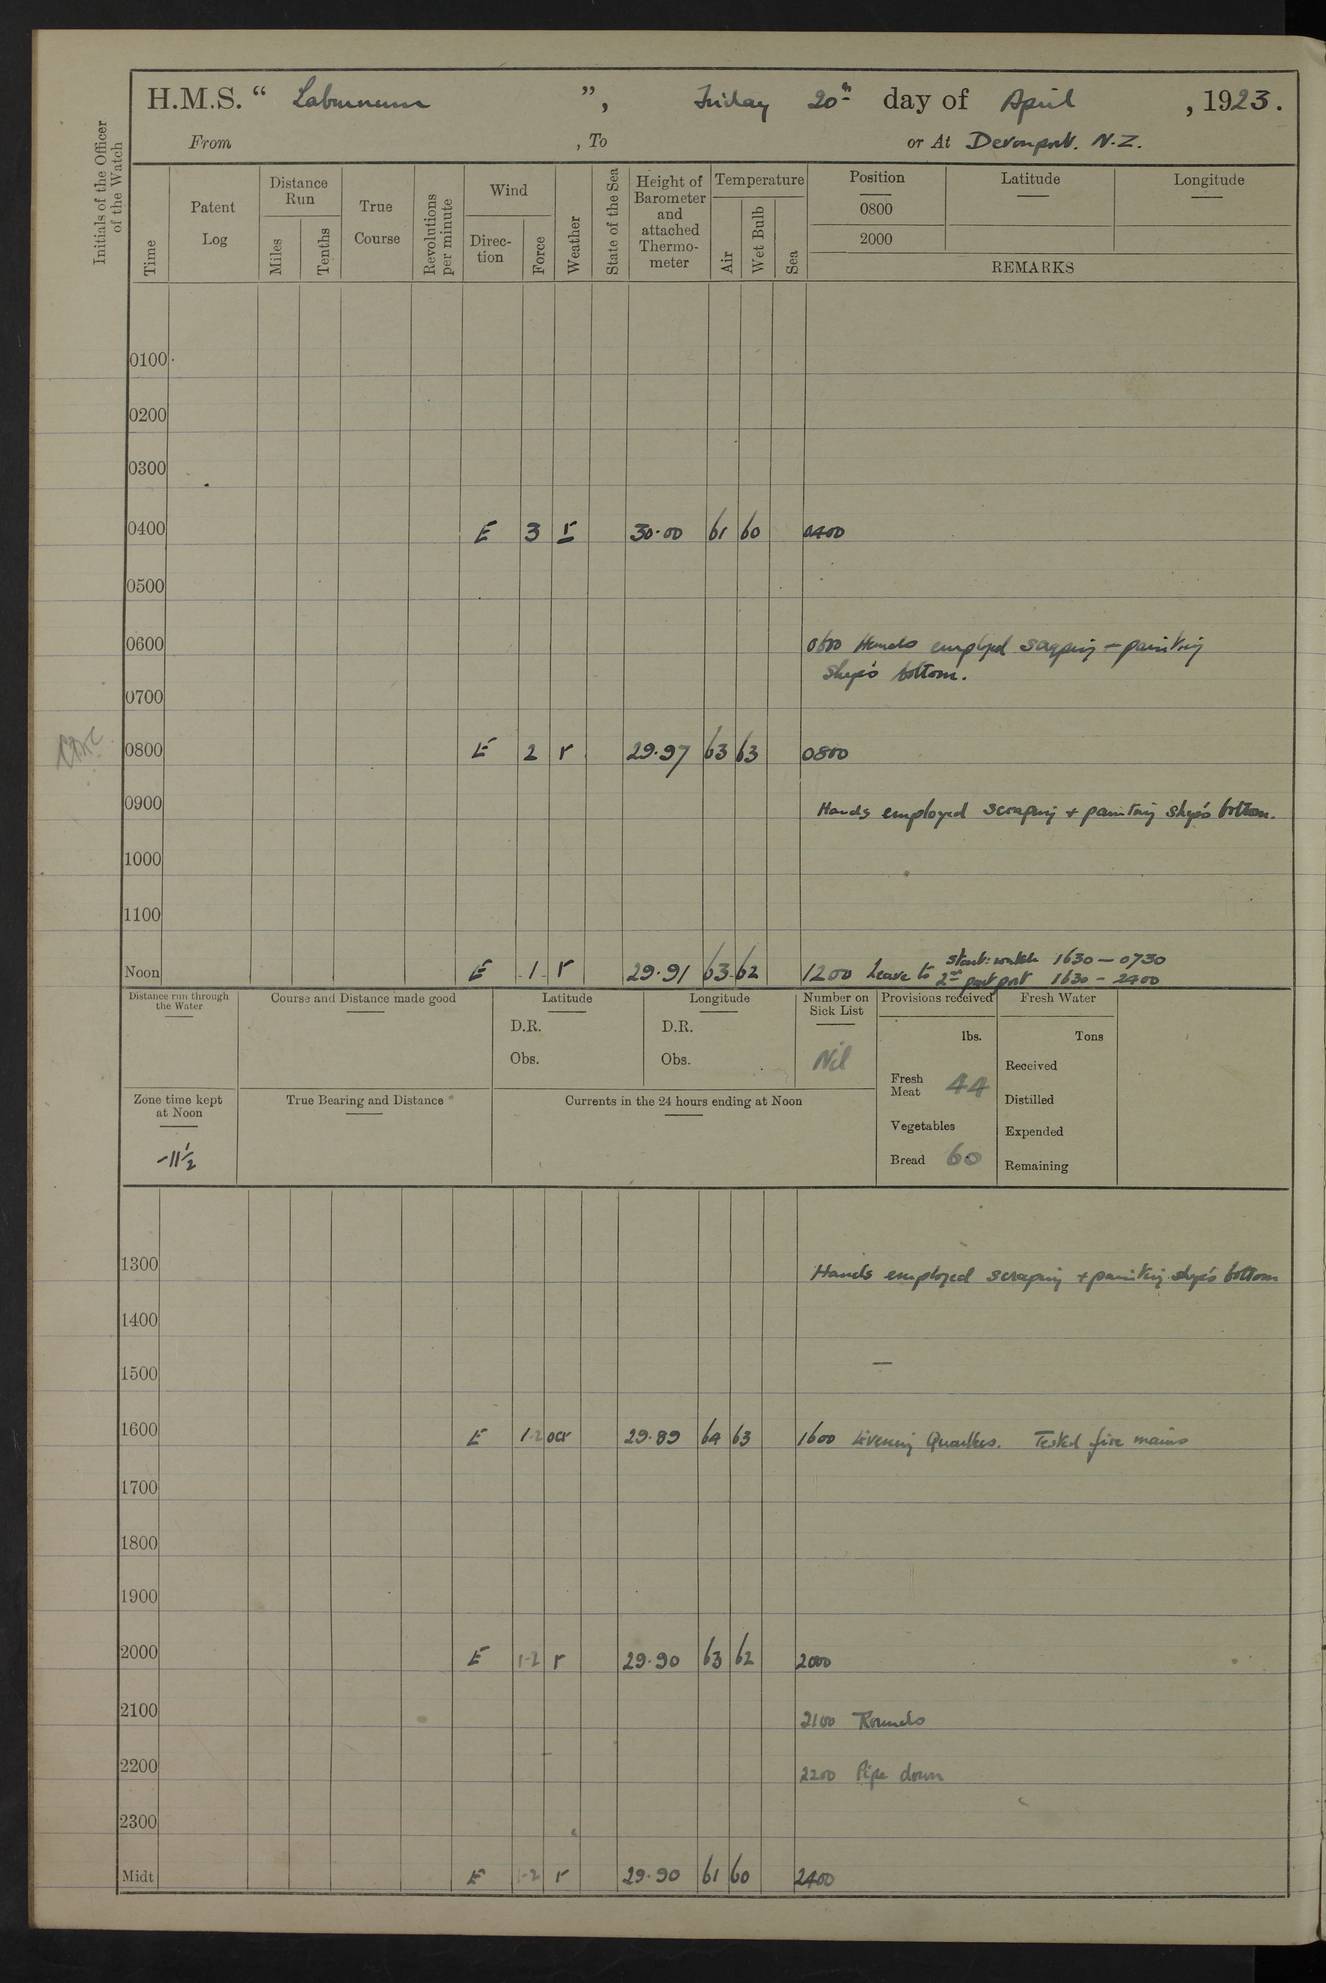 H.M.S. “ Laburnum ”, Friday 20th day of April , 1923.
From , To or At Devonport. N.Z.
Initials of the Officer of the Watch
Time
Patent Log
Distance Run
Miles
Tenths
True Course
Revolutions per minute
Wind
Direc-tion
Force
Weather
State of the Sea
Height of Barometer and attached Thermo-meter
Temperature
Air
Wet Bulb
Sea
Position
0800
2000
Latitude
Longitude
REMARKS
0100
0200
0300
0400 E 3 r 30.00 61 60 0400
0500
0600 0600 Hands employed scraping + painting
ship's bottom.
0700
0800 E 2 r 29.97 63 63 0800
0900 Hands employed scraping + painting ship's bottom.
1000
1100
Noon E 1 r 29.91 63 62 1200 Leave to starb: watch 1630 — 0730
2nd part port 1630 - 2400
Distance run through the Water
Course and Distance made good
Latitude
D.R.
Obs.
Longitude
D.R.
Obs.
Number on Sick List
Nil
Provisions received
lbs.
Fresh Meat 44
Vegetables
Bread 60
Fresh Water
Tons
Received
Distilled
Expended
Remaining
Zone time kept at Noon
-11½
True Bearing and Distance
Currents in the 24 hours ending at Noon
1300 Hands employed scraping + painting ship's bottom
1400
1500
1600 E 1-2 ocr 29.89 64 63 1600 Evening Quarters. Tested fire mains
1700
1800
1900
2000 E 1-2 r 29.90 63 62 2000
2100 2100 Rounds
2200 2200 Pipe down
2300
Midt E 1-2 r 29.90 61 60 2400